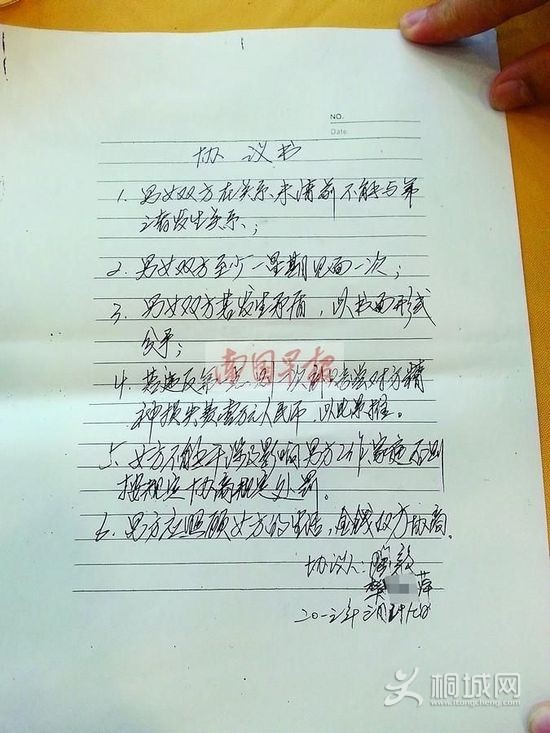 NO.
Date
协议书
1. 男女双方在关系未清前不能与第
三者发生关系;
2. 男女双方至少一星期见面一次;
3. 男女双方若发生矛盾,以书面形式
分手;
南国早报
4. 若违反第 对方精
神损失费壹万元人民币,以此类推。
5. 女方不能干涉及影响男方工作家庭否则
按规定协商规定处罚。
6. 男方应照顾女方的生活,金钱双方协商。
协议人:
萍
二〇一三年
桐城网
www.itongcheng.com